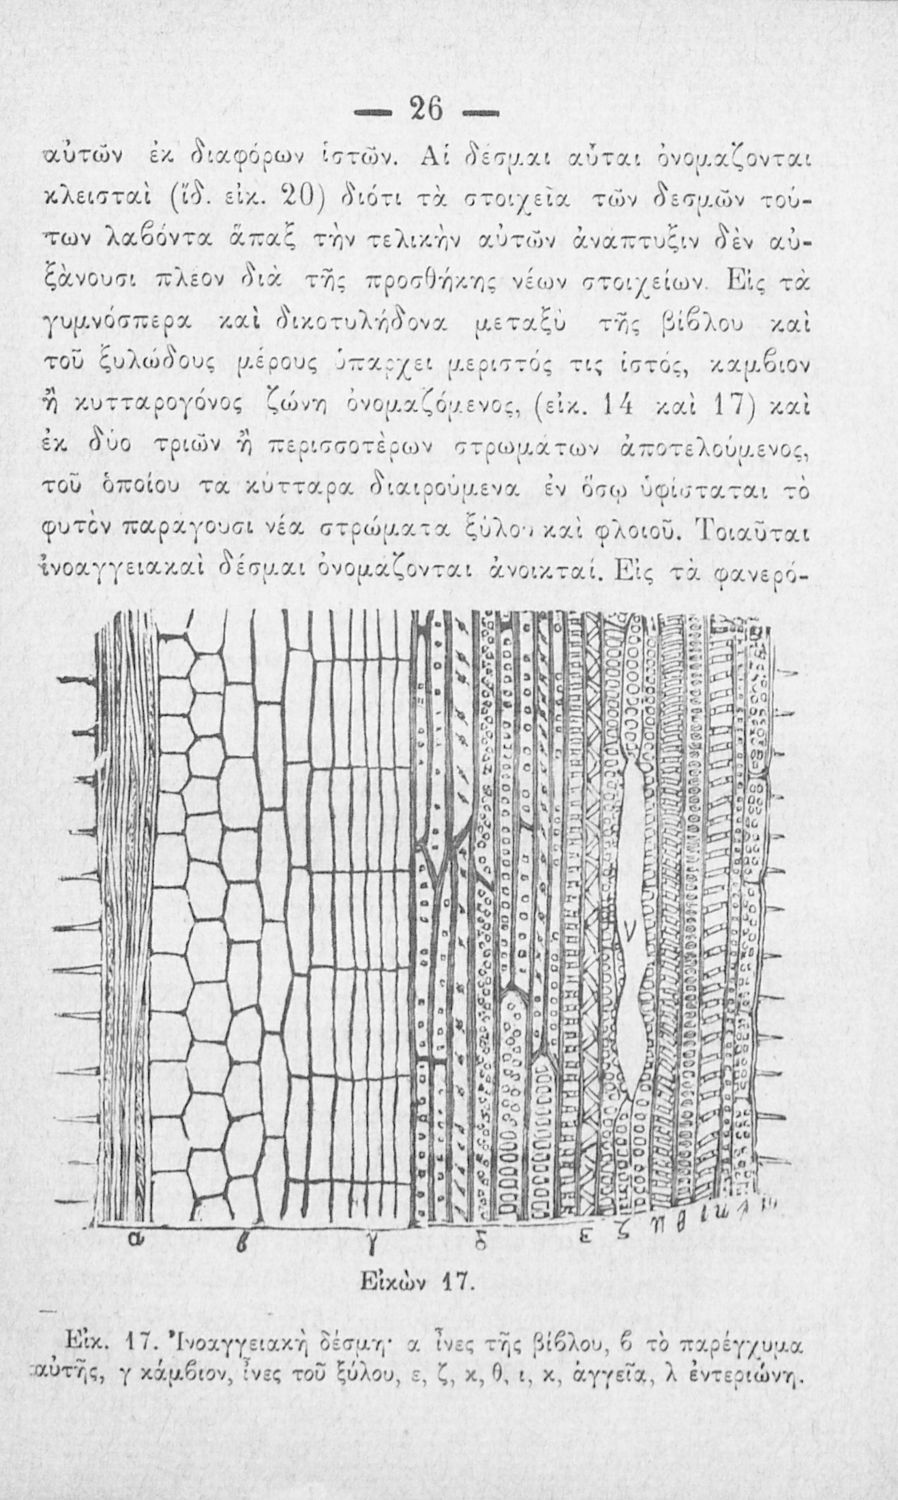 — 26 —
αὐτῶν ἐκ διαφόρων ἱστῶν. Αἱ δέσμαι αὗται ὀνομάζονται
κλεισταὶ (ἴδ. εἰκ. 20) διότι τὰ στοιχεῖα τῶν δεσμῶν τού-
των λαβόντα ἅπαξ τὴν τελικὴν αὐτῶν ἀνάπτυξιν δὲν αὐ-
ξάνουσι πλέον διὰ τῆς προσθήκης νέων στοιχείων. Εἰς τὰ
γυμνόσπερα καὶ δικοτυλήδονα μεταξὺ τῆς βίβλου καὶ
τοῦ ξυλώδους μέρους ὑπάρχει μεριστός τις ἱστός, καμβιον
ἢ κυτταρογόνος ζώνη ὀνομαζόμενος, (εἰκ. 14 καὶ 17) καὶ
ἐκ δύο τριῶν ἢ περισσοτέρων στρωμάτων ἀποτελούμενος,
τοῦ ὁποίου τα κύτταρα διαιρούμενα ἐν ὅσῳ ὑφίσταται τὸ
φυτὸν παράγουσι νέα στρώματα ξύλου καὶ φλοιοῦ. Τοιαῦται
ἰνοαγγειακαὶ δέσμαι ὀνομάζονται ἀνοικταί. Εἰς τὰ φανερό-
ν
α β γ δ ε ζ η θ ι
Εἰκὼν 17.
Εἰκ. 17. Ἰνοαγγειακὴ δέσμη· α ἶνες τῆς βίβλου, β τὸ παρέγχυμα
αὐτῆς, γ κάμβιον, ἶνες τοῦ ξύλου, ε, ζ, κ, θ, ι, κ, ἀγγεῖα, λ ἐντεριώνη.